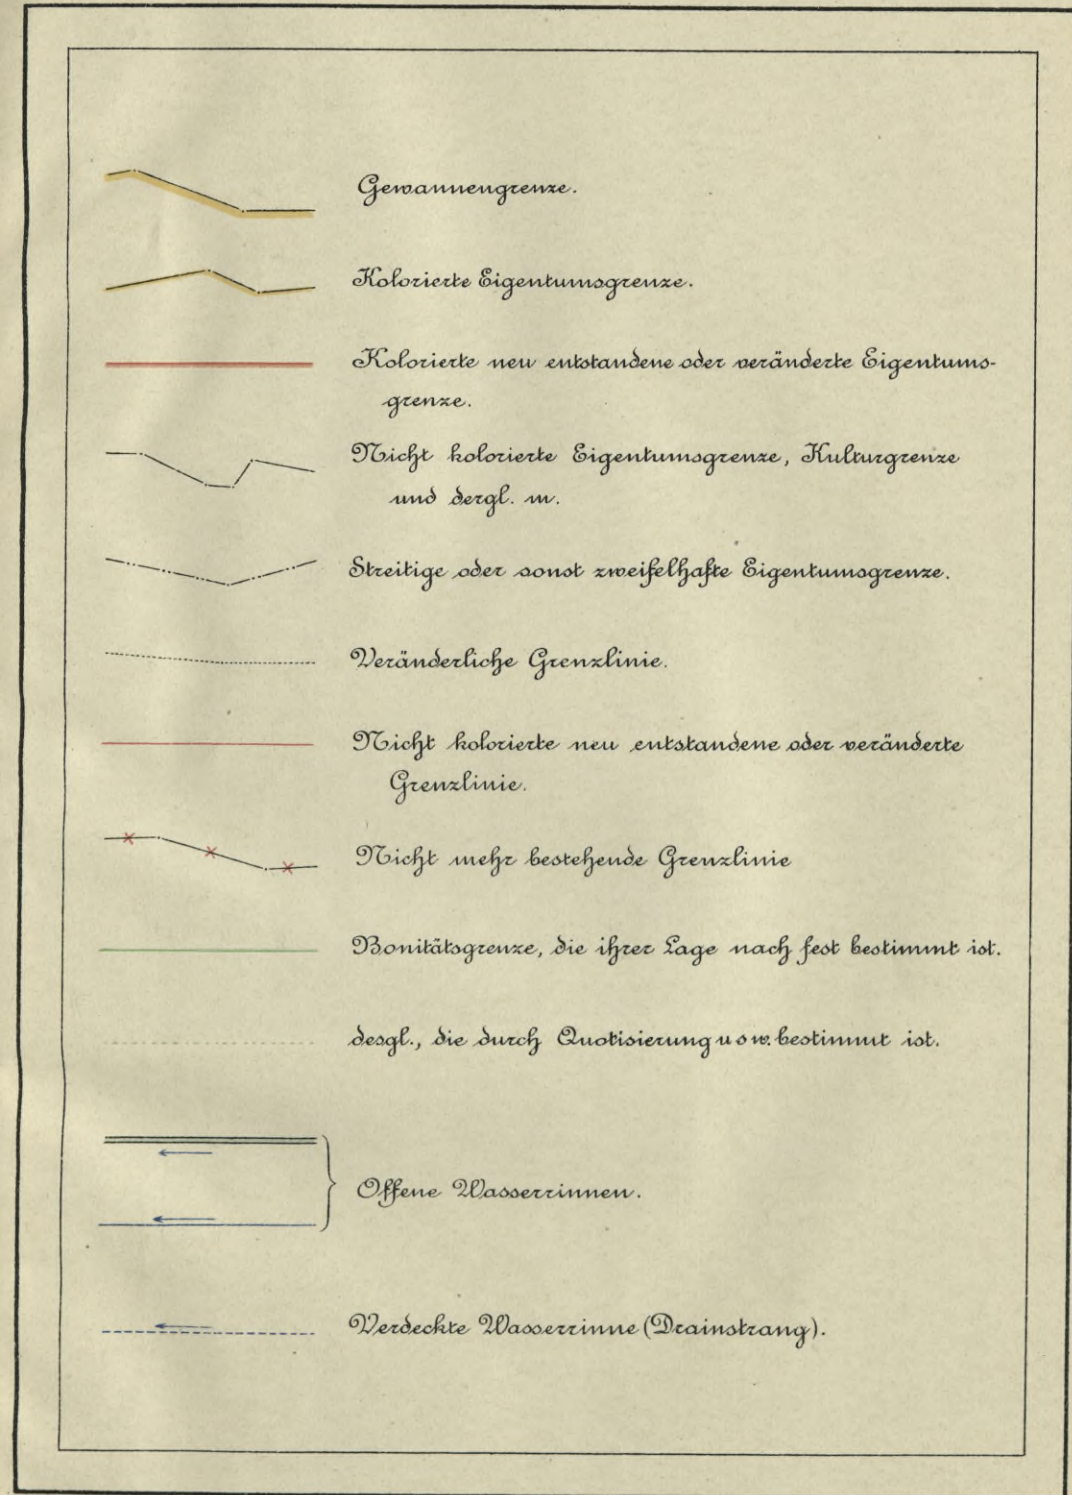 Gewannengrenze.
Kolorierte Eigentumsgrenze.
Kolorierte neu entstandene oder veränderte Eigentums-
grenze.
Nicht kolorierte Eigentumsgrenze, Kulturgrenze
und dergl. m.
Streitige oder sonst zweifelhafte Eigentumsgrenze.
Veränderliche Grenzlinie.
Nicht kolorierte neu entstandene oder veränderte
Grenzlinie.
Nicht mehr bestehende Grenzlinie
Bonitätsgrenze, die ihrer Lage nach fest bestimmt ist.
desgl., die durch Quotisierung usw. bestimmt ist.
Offene Wasserrinnen.
Verdeckte Wasserrinne (Drainstrang).